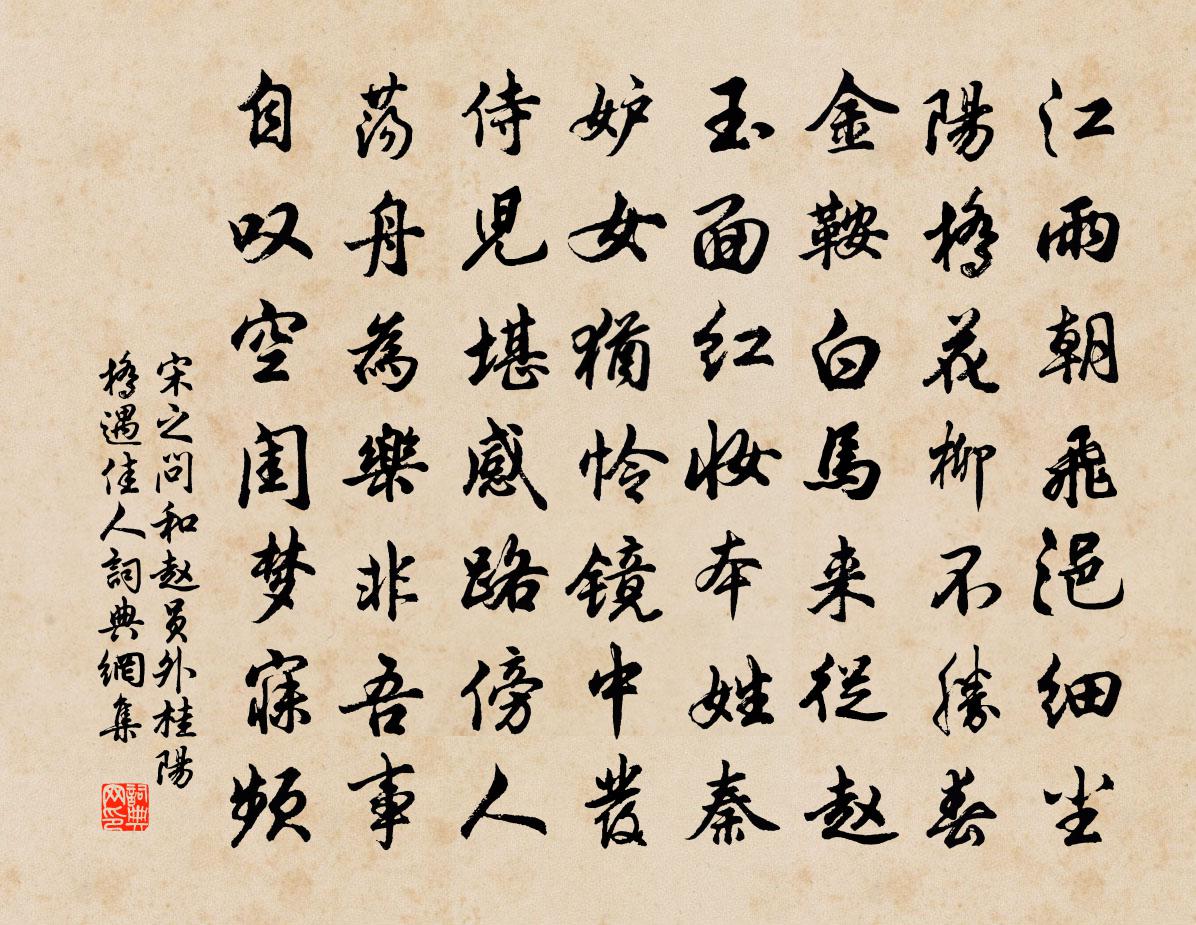 江雨朝飛浥细尘
陽橋花柳不勝春
金鞍白馬来從赵
玉面红妆本姓秦
妒女猶怜镜中發
侍児堪感路傍人
荡舟為樂非吾事
自叹空闺梦寐频
宋之问和赵员外桂陽
橋遇佳人詞典網集
詞典网印